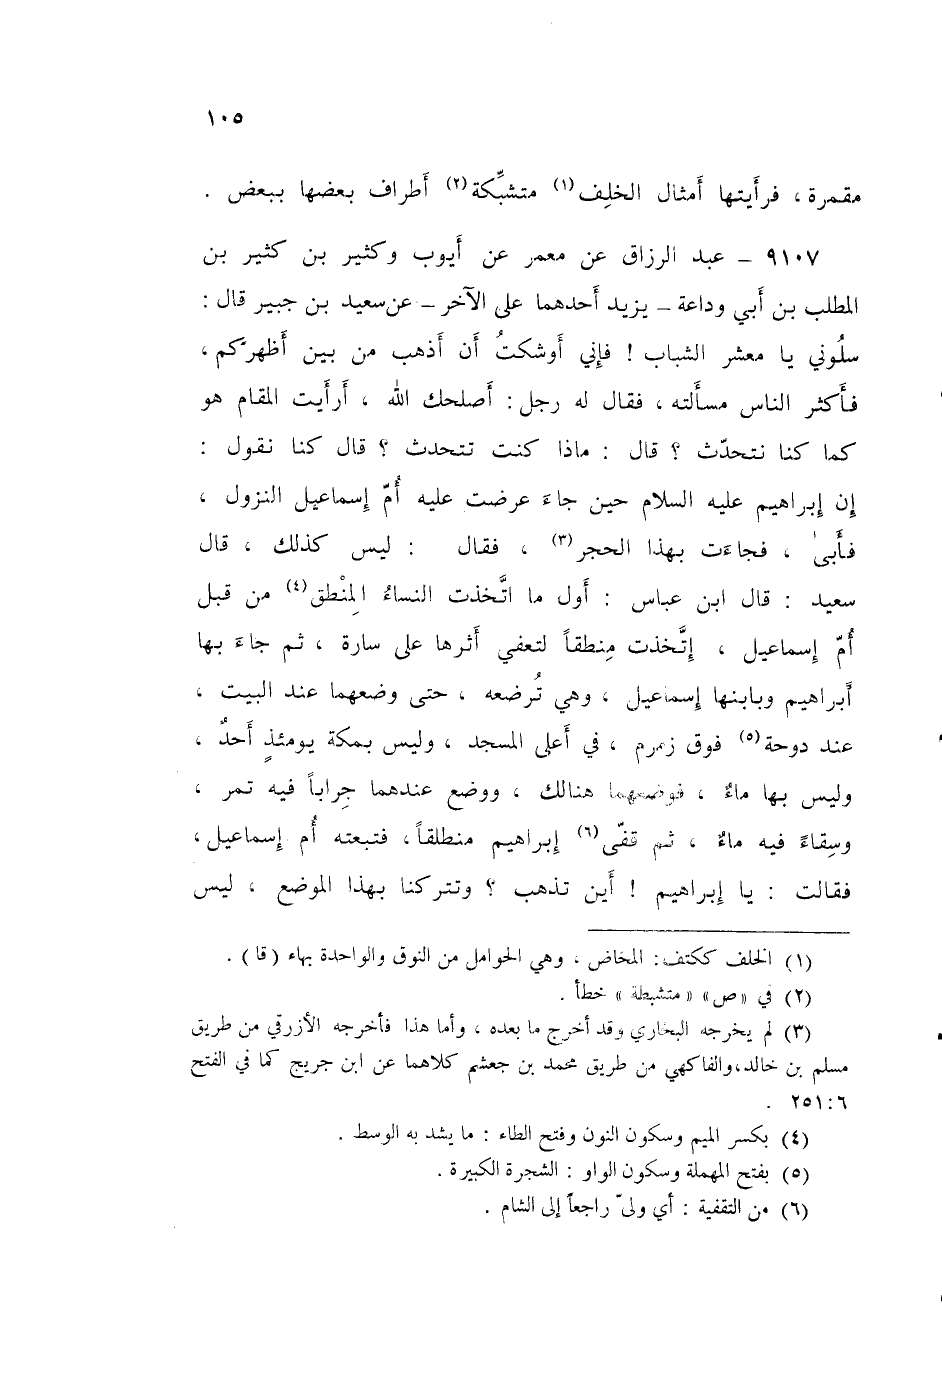 ١٠٥
مقمرة ، فرأيتها أمثال الخلِف(١) متشبِّكة(٢) أطراف بعضها ببعض .
٩١٠٧ – عبد الرزاق عن معمر عن أيوب وكثير بن كثير بن
المطلب بن أبي وداعة – يزيد أحدهما على الآخر – عن سعيد بن جبير قال :
سلُوني يا معشر الشباب ! فإني أوشكتُ أن أذهب من بين أظهركم ،
فأكثر الناس مسألته ، فقال له رجل : أصلحك الله ، أرأيت المقام هو
كما كنا نتحدّث ؟ قال : ماذا كنت تتحدث ؟ قال كنا نقول :
إن إبراهيم عليه السلام حين جاءَ عرضت عليه أُمّ إسماعيل النزول ،
فأبىٰ ، فجاءَت بهذا الحجر(٣) ، فقال : ليس كذلك ، قال
سعيد : قال ابن عباس : أول ما اتَّخذت النساءُ المِنْطق(٤) من قِبل
أُمّ إسماعيل ، إتَّخذت مِنطقاً لتعفي أثرها على سارة ، ثم جاءَ بها
أبراهيم وبابنها إسماعيل ، وهي تُرضعه ، حتى وضعهما عند البيت ،
عند دوحة(٥) فوق زمزم ، في أعلى المسجد ، وليس بمكة يومئذٍ أحدٌ ،
وليس بها ماءٌ ، فوضعهما هنالك ، ووضع عندهما جِراباً فيه تمر ،
وسِقاءً فيه ماءٌ ، ثم قفّى(٦) إبراهيم منطلقاً ، فتبعته أُم إسماعيل ،
فقالت : يا إبراهيم ! أين تذهب ؟ وتتركنا بهذا الموضع ، ليس
(١) الخلف ككتف : المخاض ، وهي الحوامل من النوق والواحدة بهاء ( قا ) .
(٢) في «ص» « متشبطة » خطأ .
(٣) لم يخرجه البخاري وقد أخرج ما بعده ، وأما هذا فأخرجه الأزرقي من طريق
مسلم بن خالد، والفاكهي من طريق محمد بن جعشم كلاهما عن ابن جريج كما في الفتح
٦ : ٢٥١ .
(٤) بكسر الميم وسكون النون وفتح الطاء : ما يشد به الوسط .
(٥) بفتح المهملة وسكون الواو : الشجرة الكبيرة .
(٦) من التقفية : أي ولىّ راجعاً إلى الشام .